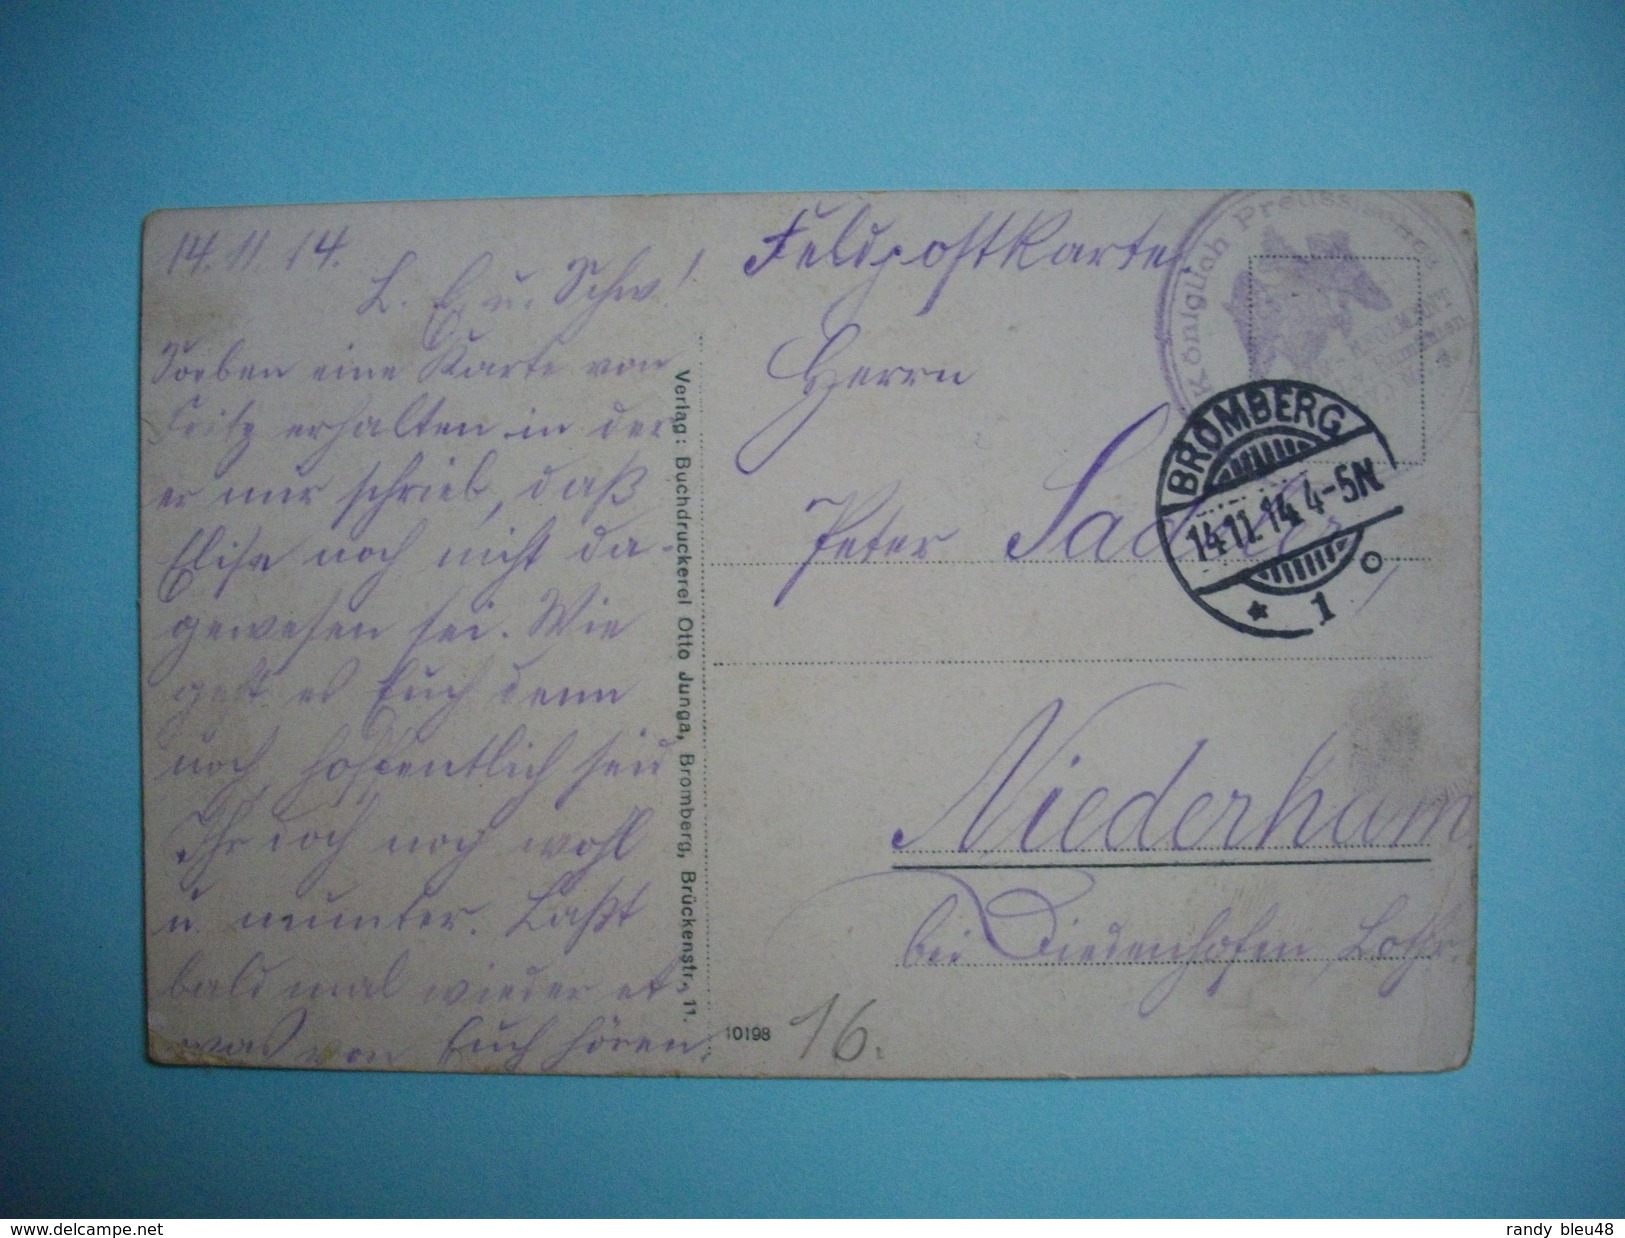 14.11.14.
L. E. u. Schw!
Soeben eine Karte von
Fritz erhalten in der
er mir schrieb, daß
Elise noch nicht da-
gewesen sei. Wie
geht es Euch denn
noch, hoffentlich seid
Ihr doch noch wohl
u. munter. Laßt
bald mal wieder et
was von Euch hören.
Verlag: Buchdruckerei Otto Junga, Bromberg, Brückenstr. 11.
10198
16.
Feldpostkarte.
Königlich Preuss
BROMBERG
14.11.14. 4-5N
* 1 o
Herrn
Peter
Niederham
bei Diedenhofen, Lothr.
www.delcampe.net
randy_bleu48